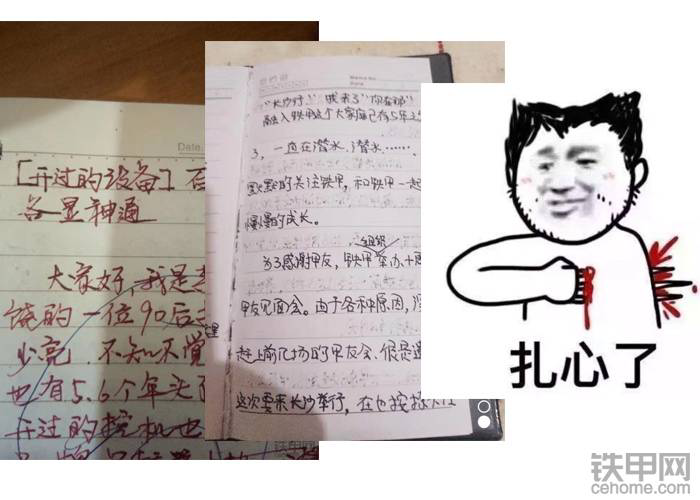 Date.
[开过的设备]
各显神通
大家好,我是
饶的一位90后
少亮.不知不觉
也有5.6个年头
开过的挖机也
Date
"长沙行","我来了"你在那"
融入铁甲这个大家庭已有5年
3、一直在潜水、潜水……
默默的关注铁甲,和铁甲一起
慢慢的成长。
组织
为了感谢甲友,铁甲举办十
甲友见面会。由于各种原因,没
赶上前几场的甲友会、很是遗
这次要来长沙举行,在也按
扎心了
铁甲网
cehome.com